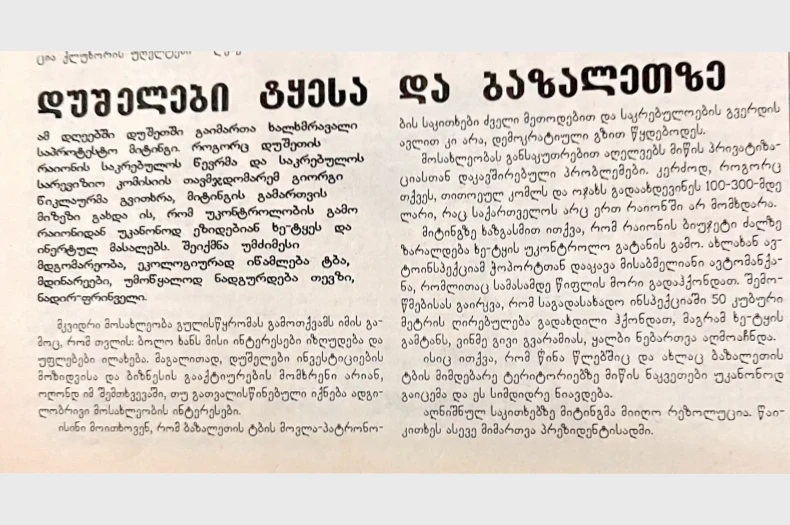 ცია ქლუხორის უღელტეხი
დუშელები ტყესა და ბაზალეთზე
ამ დღეებში დუშეთში გაიმართა ხალხმრავალი
საპროტესტო მიტინგი. როგორც დუშეთის
რაიონის საკრებულოს წევრმა და საკრებულოს
სარევიზიო კომისიის თავმჯდომარემ გიორგი
წიკლაურმა გვითხრა, მიტინგის გამართვის
მიზეზი გახდა ის, რომ უკონტროლობის გამო
რაიონიდან უკანონოდ ეზიდებიან ხე-ტყეს და
ინერტულ მასალებს. შეიქმნა უმძიმესი
მდგომარეობა, ეკოლოგიურად იწამლება ტბა,
მდინარეები, უმოწყალოდ ნადგურდება თევზი,
ნადირ-ფრინველი.
მკვიდრი მოსახლეობა გულისწყრომას გამოთქვამს იმის გა-
მოც, რომ თვლის: ბოლო ხანს მისი ინტერესები იზღუდება და
უფლებები ილახება. მაგალითად, დუშელები ინვესტიციების
მოზიდვისა და ბიზნესის გააქტიურების მომხრენი არიან,
ოღონდ იმ შემთხვევაში, თუ გათვალისწინებული იქნება ადგი-
ლობრივი მოსახლეობის ინტერესები.
ისინი მოითხოვენ, რომ ბაზალეთის ტბის მოვლა-პატრონო-
ბის საკითხები ძველი მეთოდებით და საკრებულოების გვერდის
ავლით კი არა, დემოკრატიული გზით წყდებოდეს.
მოსახლეობას განსაკუთრებით აღელვებს მიწის პრივატიზა-
ციასთან დაკავშირებული პრობლემები. კერძოდ, როგორც
თქვეს, თითოეულ კომლს და ოჯახს გადაახდევინეს 100-300-მდე
ლარი, რაც საქართველოს არც ერთ რაიონში არ მომხდარა.
მიტინგზე ხაზგასმით ითქვა, რომ რაიონის ბიუჯეტი ძალზე
ზარალდება ხე-ტყის უკონტროლო გატანის გამო. ახლახან ავ-
ტოინსპექციამ ჭოპორტთან დააკავა მისაბმელიანი ავტომანქა-
ნა, რომლითაც სამასამდე წიფლის მორი გადაჰქონდათ. შემო-
წმებისას გაირკვა, რომ საგადასახადო ინსპექციაში 50 კუბური
მეტრის ღირებულება გადახდილი ჰქონდათ, მაგრამ ხე-ტყის
გამტანს, ვინმე გივი გვარამიას, ყალბი ნებართვა აღმოაჩნდა.
ისიც ითქვა, რომ წინა წლებშიც და ახლაც ბაზალეთის
ტბის მიმდებარე ტერიტორიებზე მიწის ნაკვეთები უკანონოდ
გაიცემა და ეს სიმდიდრე ნიავდება.
აღნიშნულ საკითხებზე მიტინგმა მიიღო რეზოლუცია. წაი-
კითხეს ასევე მიმართვა პრეზიდენტისადმი.